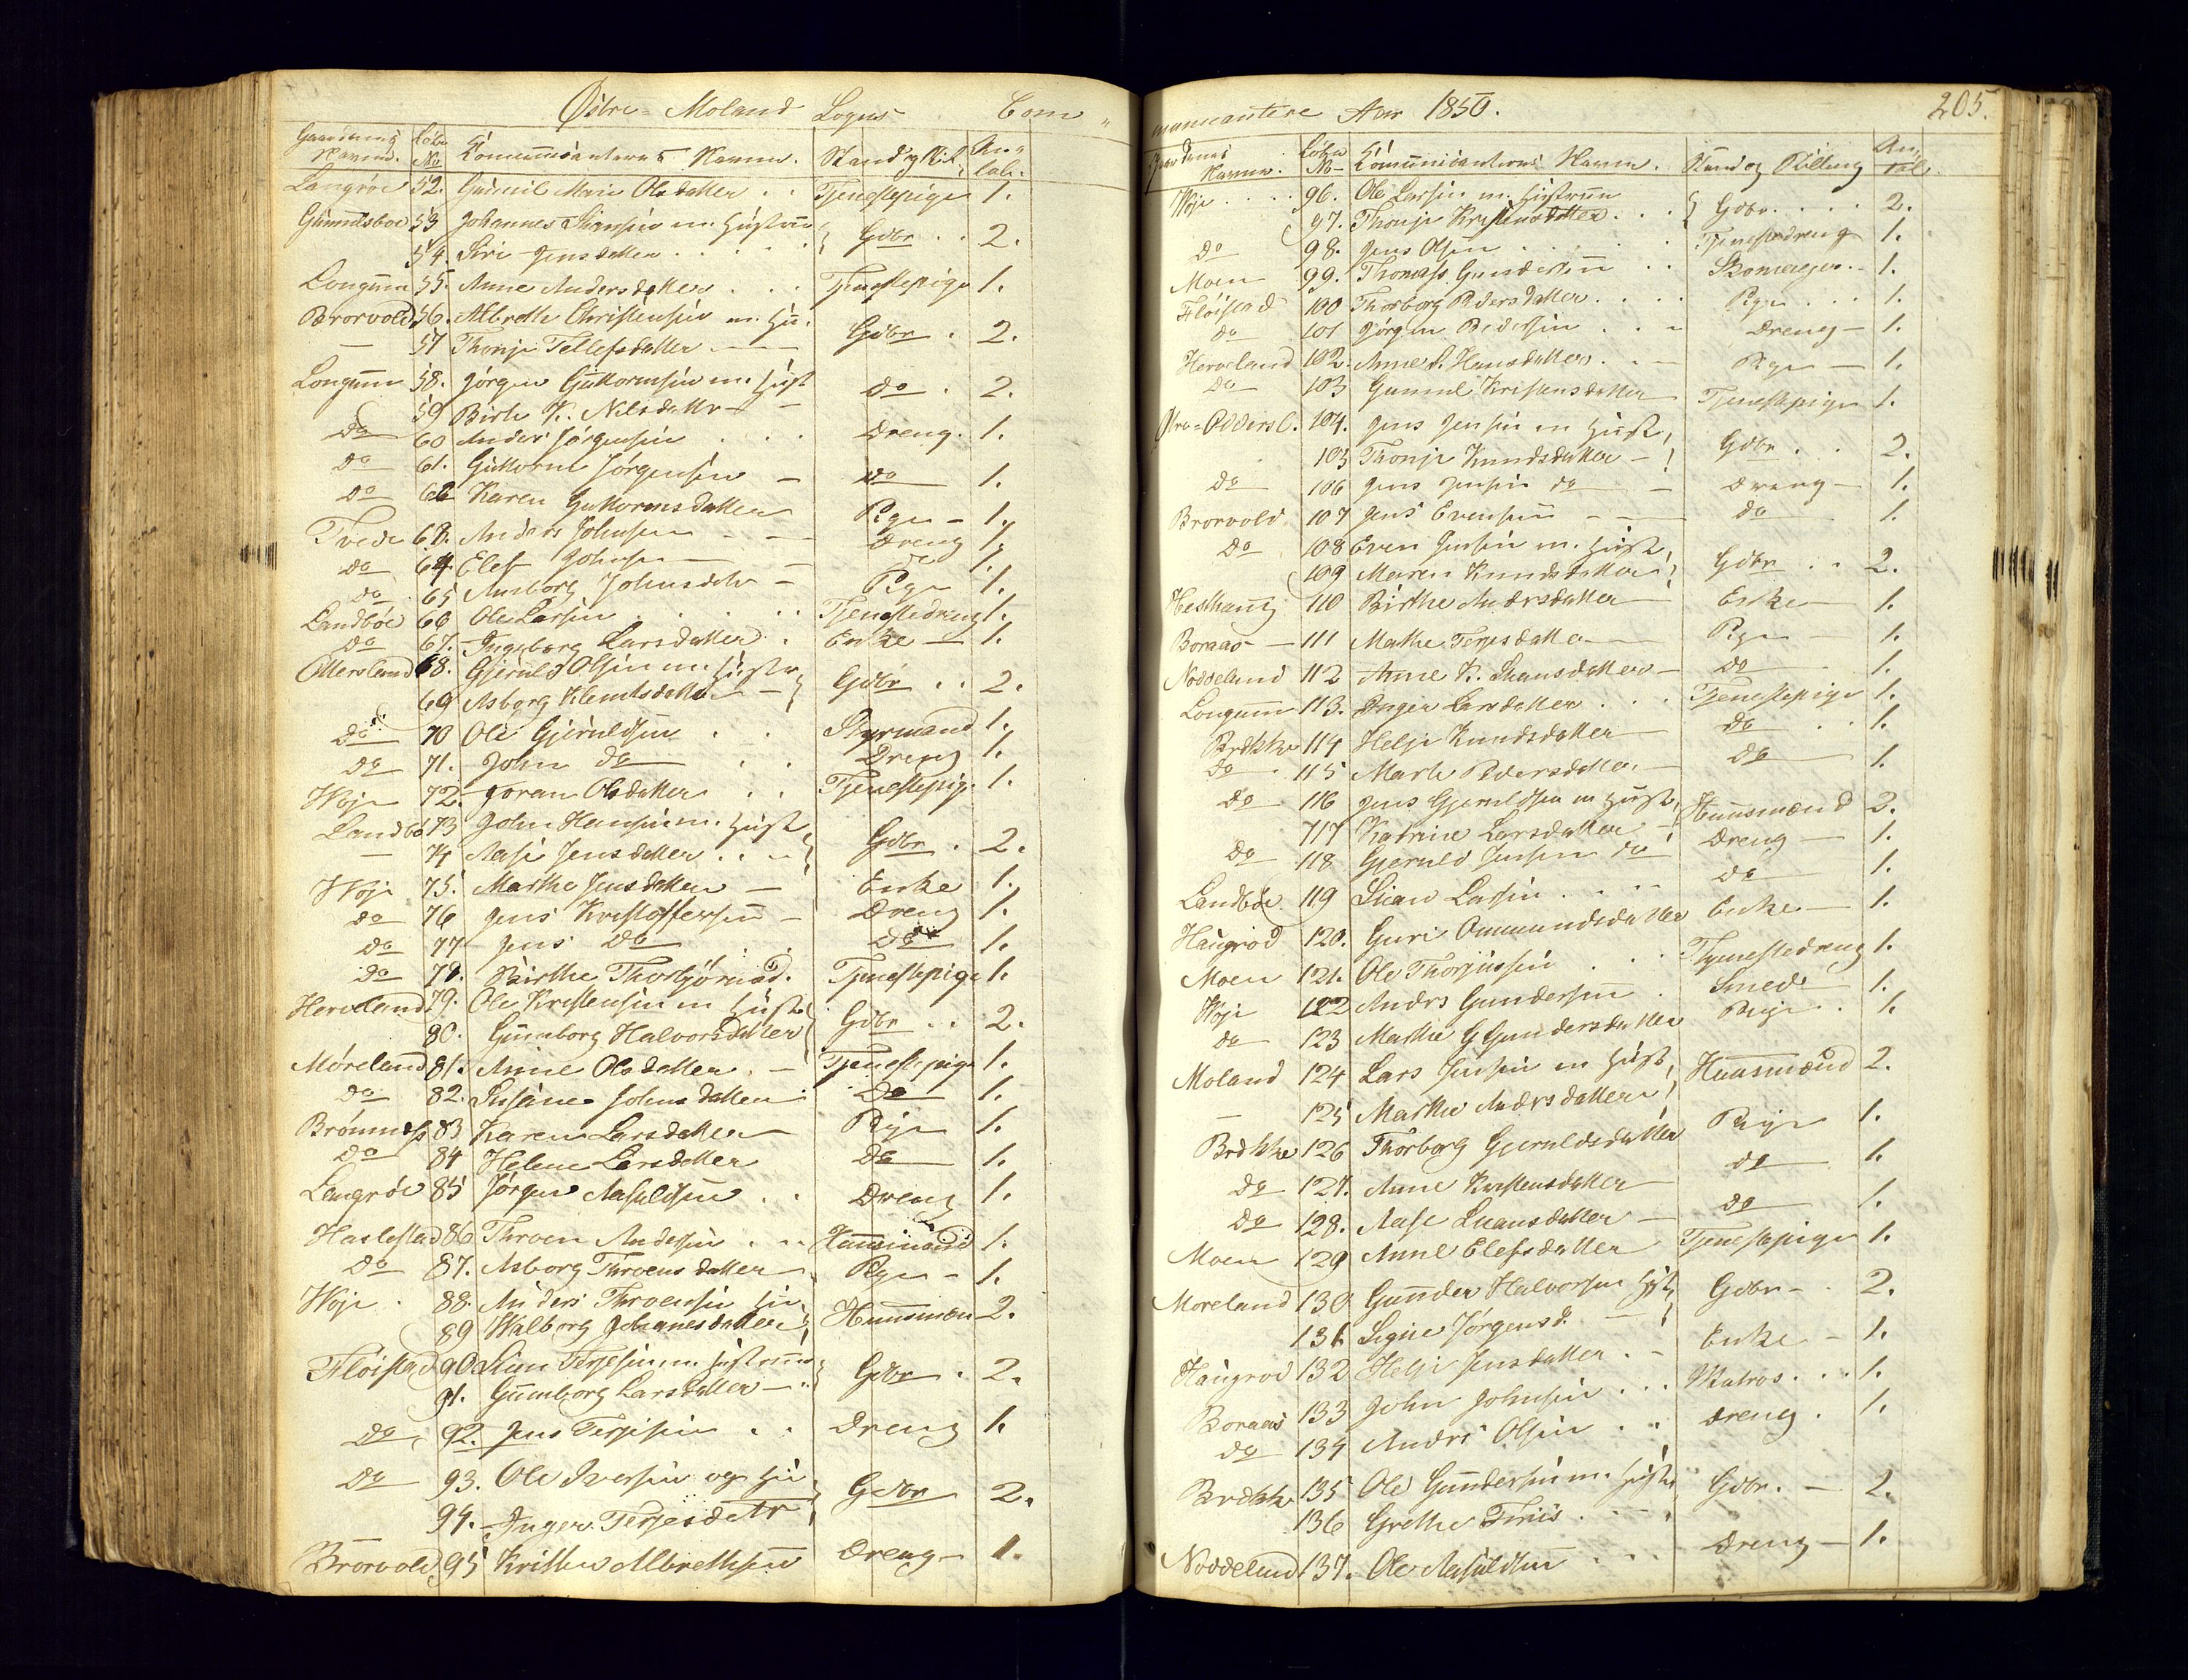 Østre- Moland Sogns Com „
Gaardenes Navne. Løbe No Communicanternes Navne. Stand og Stil. An-tal.
Langrøe 52. Gunnil Marie Olsdatter . . Tjenestepige 1.
53 Johannes m. Hustru } Gdbr . . 2.
54. Siri Jensdatter . . .
Longum 55. Anne Andersdatter . . . Tjenestepige 1.
Brorvold 56. Albreth Christensen m. Hu. Gdbr . 2.
— 57 Thonje Tellefsdatter —
Longum 58. Jørgen Guttormsen m. Hust do . 2.
59 Birte K. Nilsdattr — —
do 60 Anders Jørgensen . . . Dreng. 1.
do 61. Guttorm Jørgensen — do 1.
do 62 Karen Guttormsdatter Pge — 1.
Tvede 63. Anders Johnsen — — Dreng 1.
do 64 Elef Johnsen — do 1.
do 65 Johnsdatr — Pge 1.
Landbøe 66 Ole Larsen . . . Tjenestedreng 1.
do 67. Ingeborg Larsdatter . Enke — 1.
Ottersland 68. Gjeruld Olsen m. Hustr } Gdbr . . 2.
69 Asborg Klemetsdatter —
do 70 Ole Gjeruldsen . . Styrmand 1.
do 71. John do . . Dreng 1.
Woje 72. Joran Olsdatter . . Tjenestepig. 1.
Landbø 73 John Hansen m. Hust } Gdbr . 2.
— 74 Aase Jensdatter . . —
Woje 75. Marthe Jensdatter — Enke 1.
do 76 Jens Kristoffersen — Dreng 1.
do 77 Jens do . . do 1.
do 78. Birthe Thorbjørnsd. Tjenestepige 1.
Herreland 79. Ole Kristensen m Hust } Gdbr . . 2.
80. Gunborg Halvorsdatter
Møreland 81. Anne Olsdatter . — Tjenestepige 1.
do 82. Susane Johnsdatter do 1.
Brønnes 83 Karen Larsdatter Pige 1.
do 84 Helene Larsdatter do 1.
Langrøe 85 Jørgen Aasuldsen . . Dreng 1.
Haslestad 86 Throen Andersen . . Huusmand 1.
do 87. Asborg Throensdatter Pige — 1.
Woje . 88. Anders Throensen Hu } Huusmæn 2.
89 Walborg Johanesdatter
Fløistad 90 Terjesen m. Hustru } Gdbr . 2.
91. Gunborg Larsdatter — .
do 92. Jens Terjesen . . Dreng 1.
do 93. Ole Iversen og Hu } Gdbr 2.
94. Inger Terjesdatr
Brorvold 95 Albrethsen Dreng — 1.
municantere Aar 1850. 205.
Gaardenes Navne. Løbe No Communicanternes Navne. Stand og Stilling An-tal.
Woje . . . 96. Ole Larsen m. Hustru } Gdbr . . . 2.
97. Thonje Kristensdatter . . .
do 98. Jens Olsen . . . . Tjenestedreng 1.
Moen 99. Thomas Gundersen . . Skomager — 1.
Fløistad 100 Thorborg Pedersdatter . . . Pge . . . 1.
do 101 Jørgen Pedersen . . — Dreng — 1.
Herreland 102. Anne S. Hansdatter . . — Pge — 1.
do 103 Gunnil Kristensdatter Tjenestepige 1.
Øvre-Oddersl. 104. Jens Jensen m Hust } Gdbr . . 2.
105 Thonje Knudsdatter —
do 106 Jens Jensen do — Dreng — 1.
Brorvold 107 Jens Evensen — — do 1.
do 108 Even Jensen m. Hust } Gdbr . . 2.
109 Maren Knudsdatter
110 Birthe Andersdatter Enke 1.
Boraas — 111 Mathe Terjesdatter Pge — 1.
Noddeland 112 Anne K. — do 1.
Longum 113. Inger Larsdatter . . . Tjenestepige 1.
Brekke 114 Helje Knudsdatter do . . 1.
do 115 Marte Pedersdatter — do 1.
do 116 Jens Gjeruldsen m Hust } Huusmænd 2.
117 Katrine Larsdatter —
do 118 Gjeruld Jensen do Dreng — 1.
Landbøe 119 Larsen . . . do 1.
Haugrød 120. Guri Ommundsdatter Enke — 1.
Moen 121. Ole Thorjussen . . . Tjenestedreng 1.
Woje 122 Anders Gundersen . Smed 1.
do 123 Marthe G Gundersdatter Pige . 1.
Moland 124 Lars Jensen m Hust } Huusmænd 2.
— 125 Marthe Andersdatter
Brekke 126 Thorborg Gjeruldsdatter Pige 1.
do 127. Anne Kristensdatter do 1.
do 128. Aase — do 1.
Moen 129 Anne Elefsdatter Tjenestepige 1.
Moreland 130 Gunder Halvorsen Hust } Gdbr — . 2.
131 Signe Jørgensd. —
Haugrød 132 Helje Jensdatter . — Enke — 1.
Boraas 133 John Johnsen . . . Matros . . . 1.
do 134 Anders Olsen . . Dreng . 1.
Brekke 135 Ole Gundersen m. Hustr Gdbr. — 2.
136 Grethe Friis . — .
Noddeland 137. Ole Aasuldsen . . . Dreng — 1.